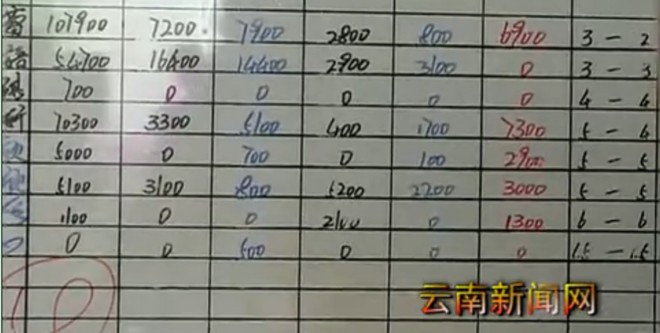 107900 7200 7900 2800 800 6900 3-2
54700 16400 14400 2900 3100 0 3-3
700 0 0 0 0 0 4-4
70300 3300 5100 400 1700 7300 5-4
5000 0 700 0 100 2900 5-5
5100 3100 800 5200 2200 3000 5-5
1100 0 0 2100 0 1300 6-6
0 0 500 0 0 0 1.5-1.5
云南新闻网